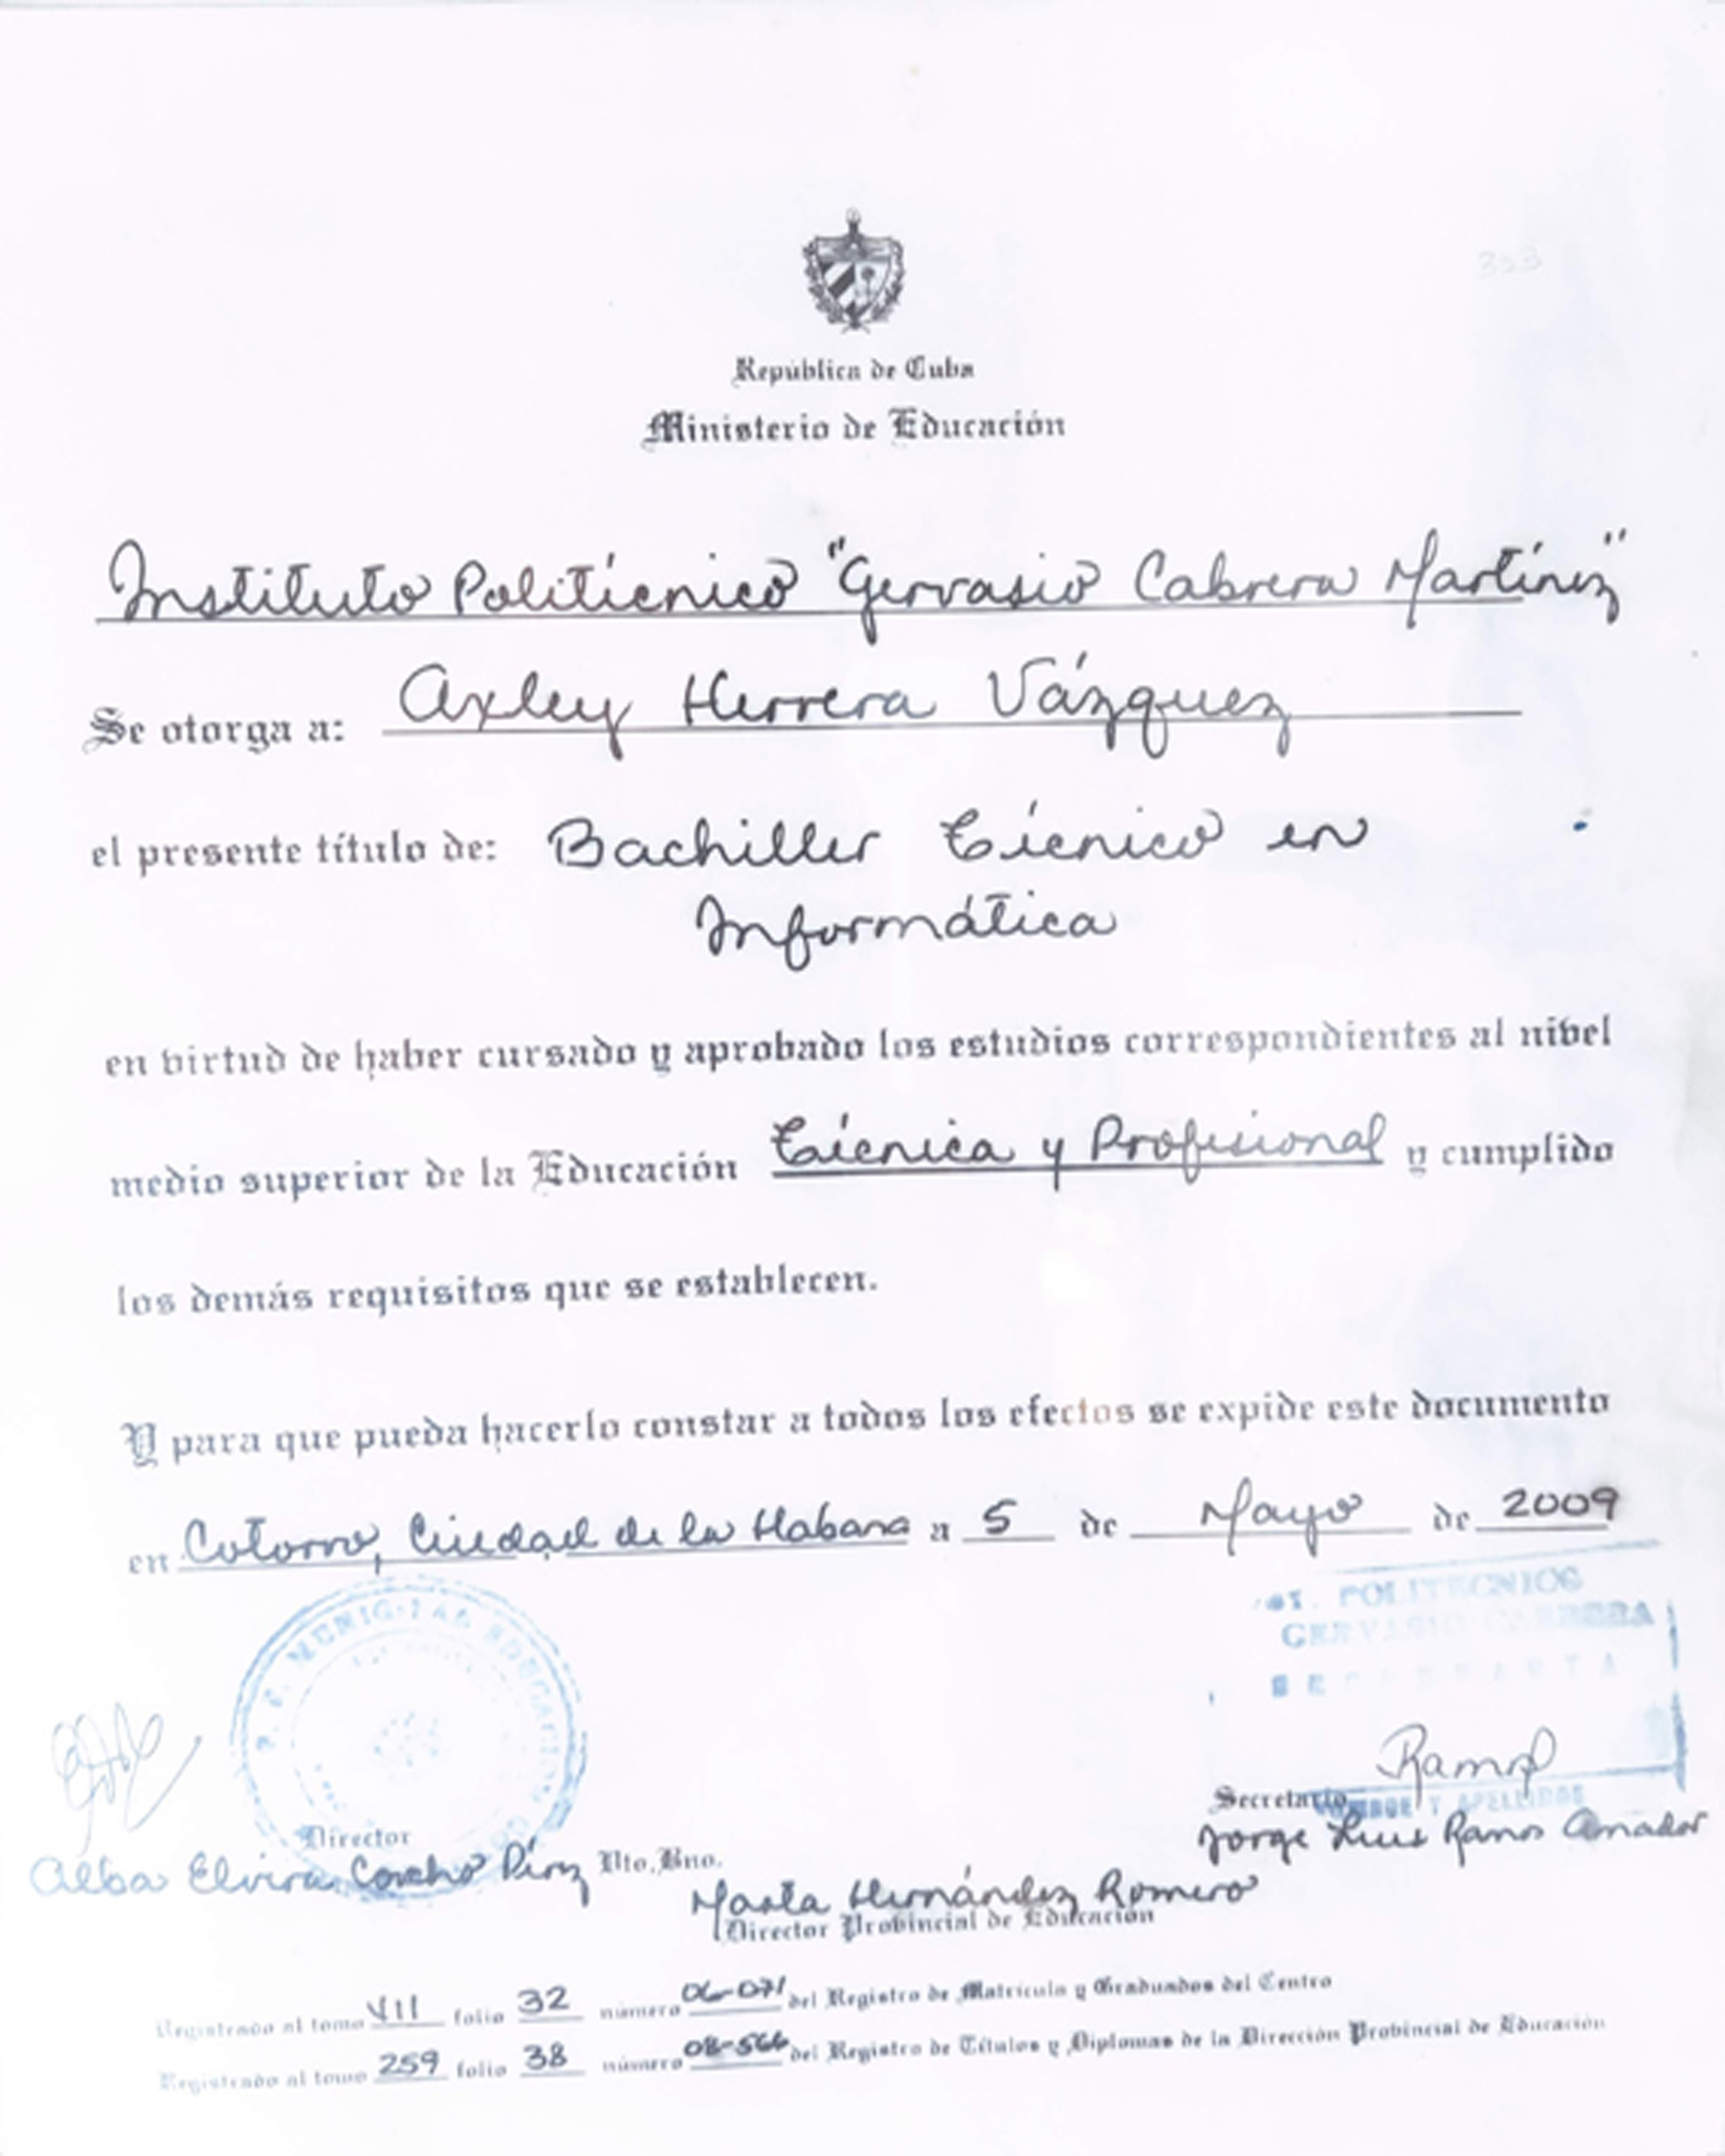 303
República de Cuba
Ministerio de Educación
Instituto Politécnico "Gervasio Cabrera Martínez"
Se otorga a: Axley Herrera Vázquez
el presente título de: Bachiller Técnico en
Informática
en virtud de haber cursado y aprobado los estudios correspondientes al nivel
medio superior de la Educación Técnica y Profesional y cumplido
los demás requisitos que se establecen.
Y para que pueda hacerlo constar a todos los efectos se expide este documento
en Cotorro, Ciudad de la Habana a 5 de Mayo de 2009
MUNICIPAL EDUCACION
POLITECNICOS
GERVASIO CABRERA
SECRETARIA
Ramos
Secretario
NOMBRE Y APELLIDOS
Jorge Luis Ramos Amador
Director
Alba Elvira Corcho Pérez Vto. Bno.
Marta Hernández Romero
Director Provincial de Educación
Registrado al tomo VII folio 32 número 06-071 del Registro de Matrícula y Graduados del Centro
Registrado al tomo 259 folio 38 número 08-566 del Registro de Títulos y Diplomas de la Dirección Provincial de Educación